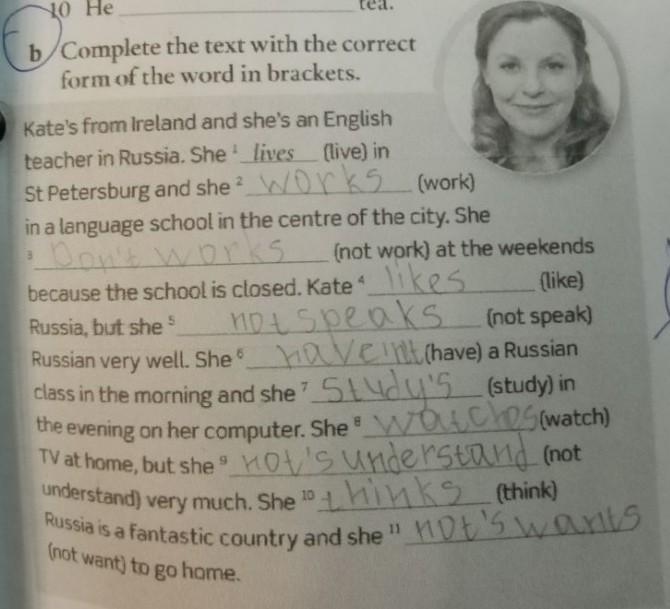 10 He ____________ tea.
b Complete the text with the correct
form of the word in brackets.
Kate's from Ireland and she's an English
teacher in Russia. She 1 lives (live) in
St Petersburg and she 2 works (work)
in a language school in the centre of the city. She
3 Don't works (not work) at the weekends
because the school is closed. Kate 4 likes (like)
Russia, but she 5 not speaks (not speak)
Russian very well. She 6 (have) a Russian
class in the morning and she 7 study's (study) in
the evening on her computer. She 8 watches (watch)
TV at home, but she 9 not's understand (not
understand) very much. She 10 thinks (think)
Russia is a fantastic country and she 11 not's wants
(not want) to go home.